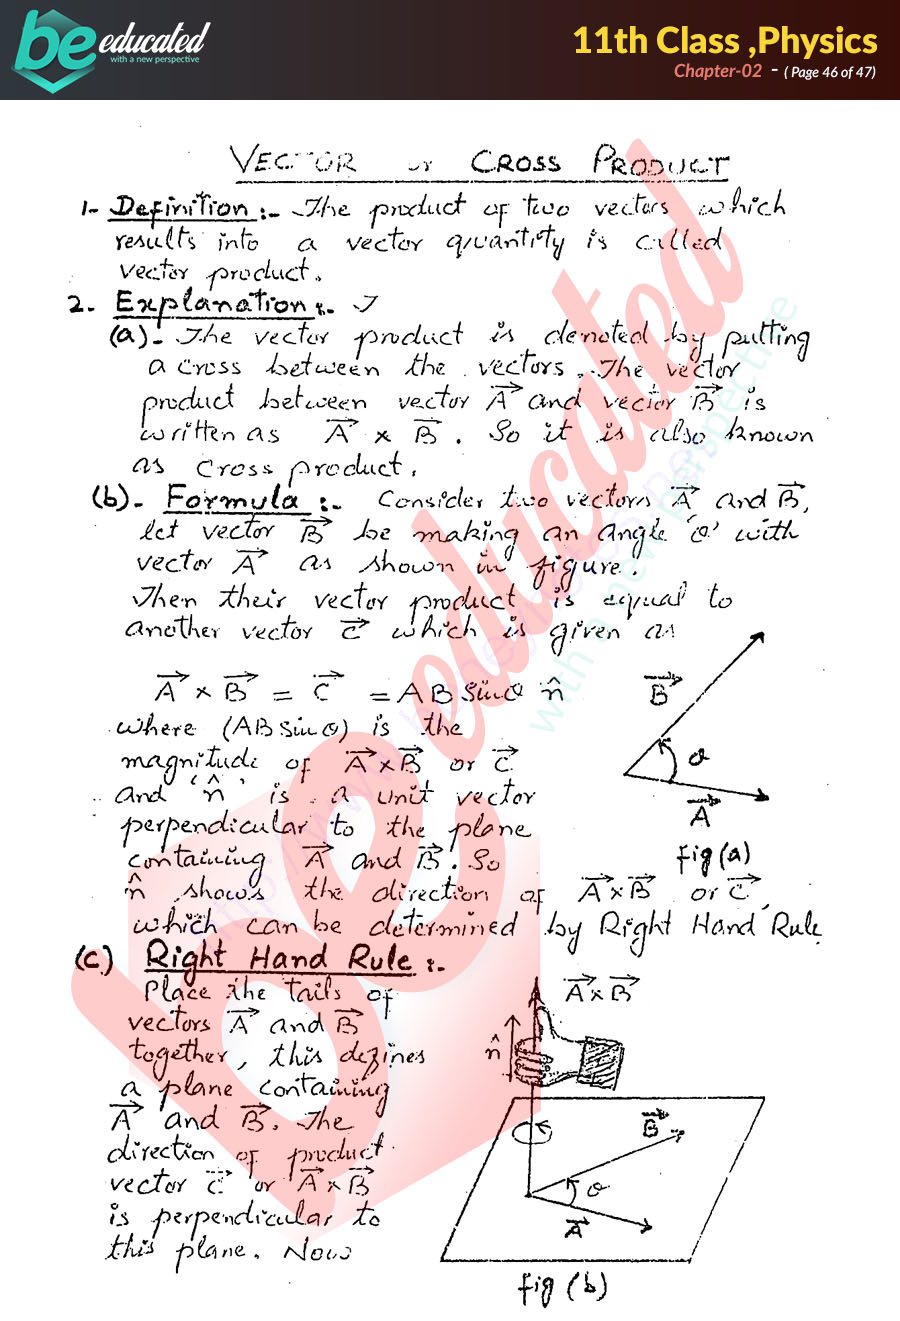 be educated
with a new perspective
11th Class ,Physics
Chapter-02 - ( Page 46 of 47)
VECTOR or CROSS PRODUCT
1- Definition :- The product of two vectors which
results into a vector quantity is called
vector product.
2. Explanation :-
(a)- The vector product is denoted by putting
a cross between the vectors. The vector
product between vector A⃗ and vector B⃗ is
written as A⃗ × B⃗. So it is also known
as cross product.
(b)- Formula :- Consider two vectors A⃗ and B⃗,
let vector B⃗ be making an angle 'θ' with
vector A⃗ as shown in figure.
Then their vector product is equal to
another vector C⃗ which is given as
A⃗ × B⃗ = C⃗ = AB Sinθ n̂
where (AB sin θ) is the
magnitude of A⃗ × B⃗ or C⃗
and 'n̂' is a unit vector
perpendicular to the plane
containing A⃗ and B⃗. So
n̂ shows the direction of A⃗×B⃗ or C⃗,
which can be determined by Right Hand Rule
B⃗
θ
A⃗
fig (a)
(c) Right Hand Rule :-
Place the tails of
vectors A⃗ and B⃗
together, this defines
a plane containing
A⃗ and B⃗. The
direction of product
vector C⃗ or A⃗×B⃗
is perpendicular to
this plane. Now
A⃗×B⃗
n̂
B⃗
θ
A⃗
fig (b)
be educated
with a new perspective